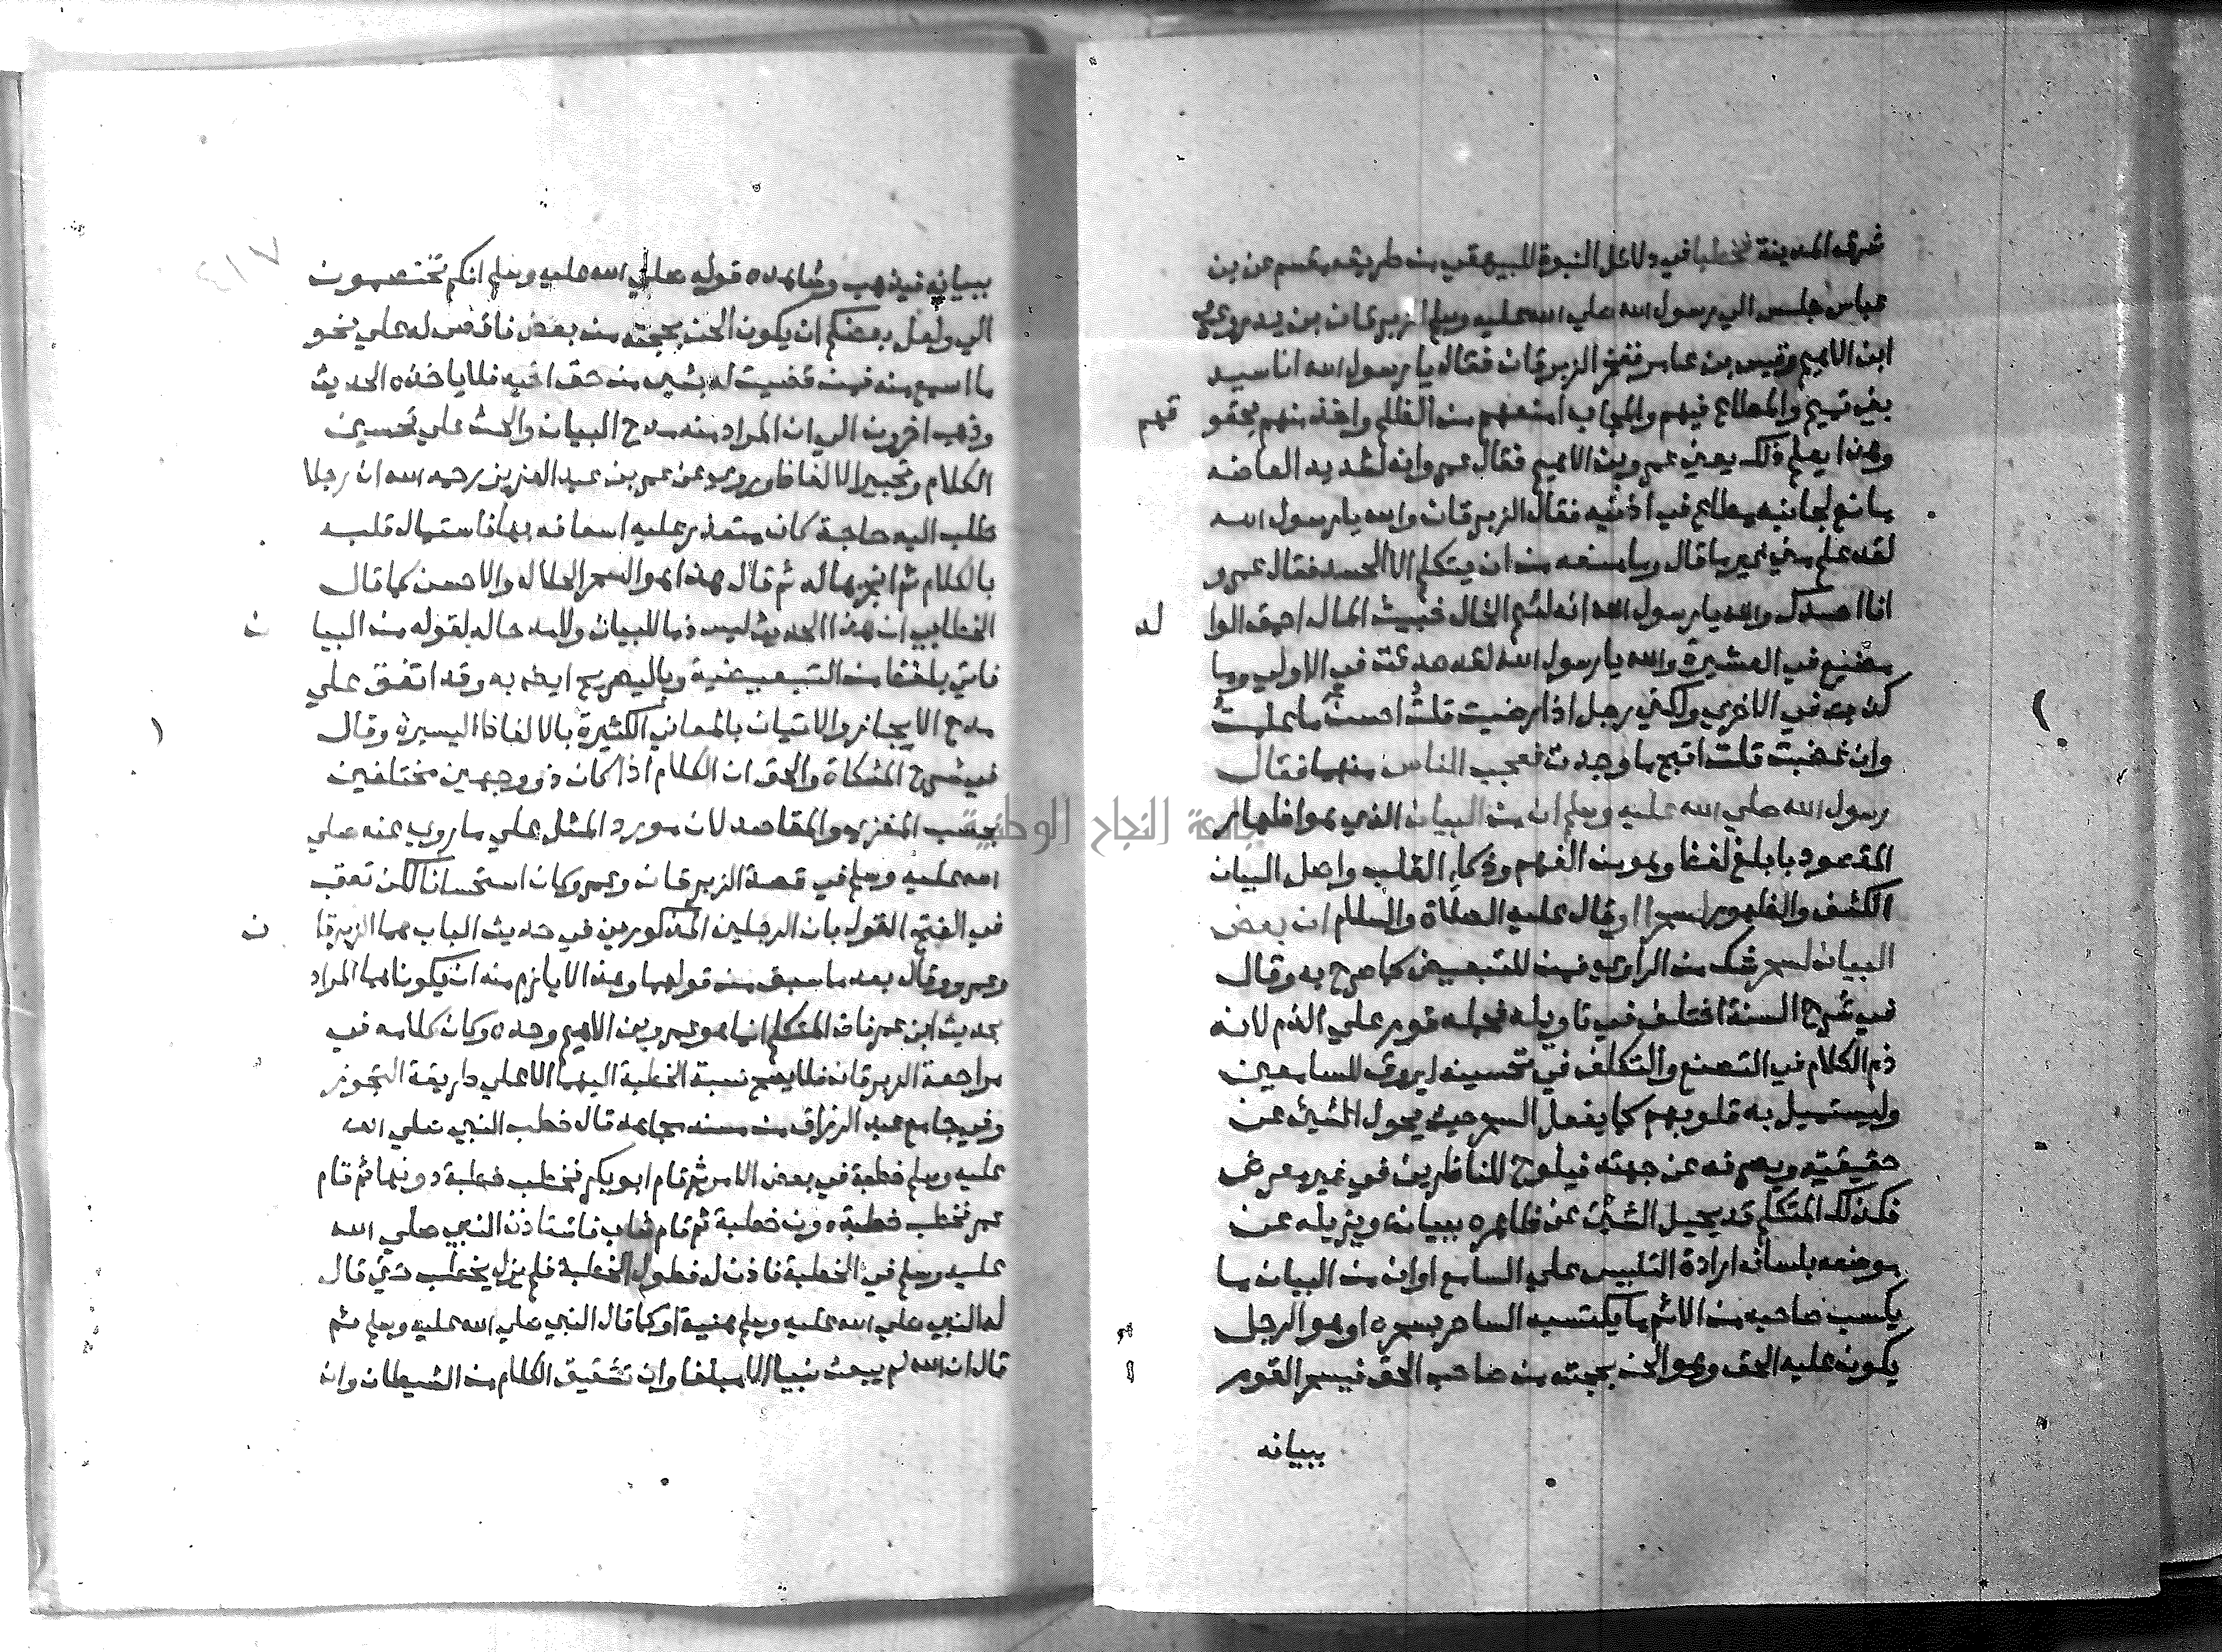 شرقي المدينة فخطبا في دلائل النبوة للبيهقي من طريق مقسم عن بن
عباس جلس الي رسول الله صلي الله عليه وسلم الزبرقان بن بدر وعمرو
ابن الاهيم وقيس بن عاصم ففخر الزبرقان فقال يا رسول الله انا سيد
بني تميم والمطاع فيهم والمجاب امنعهم من الظلم واخذ منهم بحقو قهم
وهذا يعلم ذلك يعني عمرو بن الاهيم فقال عمرو انه لشديد العارضه
مانع لجانبه مطاع في اذنيه فقال الزبرقان والله يا رسول الله
لقد علم مني غير ما قال وما منعه من ان يتكلم الا الحسد فقال عمرو
انا احسدك والله يا رسول الله انه لئيم الخال خبيث المال احمق الوا لد
مضيع في العشيرة والله يا رسول الله لقد صدقت في الاولي وما
كذبت في الاخري ولكني رجل اذا رضيت قلت احسن ما علمت
وان غضبت قلت اقبح ما وجدت فعجب الناس منهما فقال
رسول الله صلي الله عليه وسلم ان من البيان الذي هو اظهار
المقصود بابلغ لفظ وهو من الفهم وذكاء القلب واصل البيان
الكشف والظهور لسحرا او قال عليه الصلاة والسلام ان بعض
البيان لسحر شك من الراوي فمن للتبعيض كما صرح به وقال
في شرح السنة اختلف في تاويله فحمله قوم علي الذم لانه
ذم الكلام في التصنع والتكلف في تحسينه ليروق للسامعين
وليستميل به قلوبهم كما يفعل السحر حيث يحول الشيئ عن
حقيقيته ويصرفه عن جهته فيلوح للناظرين في غير معرض
فكذلك المتكلم قد يحيل الشيئ عن ظاهره ببيانه ويزيله عن
موضعه بلسانه ارادة التلبيس علي السامع او ان من البيان ما
يكسب صاحبه من الاثم ما يكتسبه الساحر بسحره او هو الرجل
يكون عليه الحق وهو الحن بحجته من صاحب الحق فيسحر القوم
ببيانه
ببيانه فيذهب وشاهده قوله صلي الله عليه وسلم انكم تختصمون
الي ولعل بعضكم ان يكون الحن بحجته من بعض فاقضي له علي نحو
ما اسمع منه فمن قضيت له بشيء من حق اخيه فلا ياخذه الحديث
وذهب اخرون الي ان المراد منه مدح البيان والحث علي تحسين
الكلام وتحبير الالفاظ وروي عن عمر بن عبد العزيز رحمه الله ان رجلا
طلب اليه حاجة كان يتعذر عليه اسعافه بها فاستمال قلبه
بالكلام ثم انجزها له ثم قال هذا هو السحر الحلال والاحسن كما قال
الخطابي ان هذا الحديث ليس ذما للبيان ولا مدحا له لقوله من البيا ن
فاتي بلفظ من التبعيضية وباليصريح ايضا به وقد اتفق علي
مدح الايجاز والاتيان بالمعاني الكثيرة بالالفاظ اليسيرة وقال
في شرح المشكاة والحق ان الكلام اذا كان ذو وجهين مختلفين
بحسب المغزي والمقاصد لان مورد المثل علي ما روي عنه صلي
الله عليه وسلم في قصة الزبرقان وعمرو كان استحسانا لكن تعقب
في الفتح القول بان الرجلين المذكورين في حديث الباب هما الزبرقا ن
وعمرو وقال بعد ما سبق من قولهما وهذا لا يلزم منه ان يكونا هما المراد
بحديث ابن عمر فان المتكلم انما هو عمرو بن الاهيم وحده وكان كلامه في
مراجعة الزبرقان فلا يصح نسبة الخطبة اليهما الا علي طريقة التجوز
وفي جامع عبد الرزاق من مسند مجاهد قال خطب النبي صلي الله
عليه وسلم خطبة في بعض الامر ثم قام ابو بكر فخطب خطبة دونها ثم قام
عمر فخطب خطبة دون خطبة ثم قام شاب فاستاذن النبي صلي الله
عليه وسلم في الخطبة فاذن له فطول الخطبة فلم يزل يخطب حتي قال
له النبي صلي الله عليه وسلم هنية او كما قال النبي صلي الله عليه وسلم ثم
قال ان الله لم يبعث نبيا الا مبلغا وان تشقيق الكلام من الشيطان وان
جامعة النجاح الوطنية